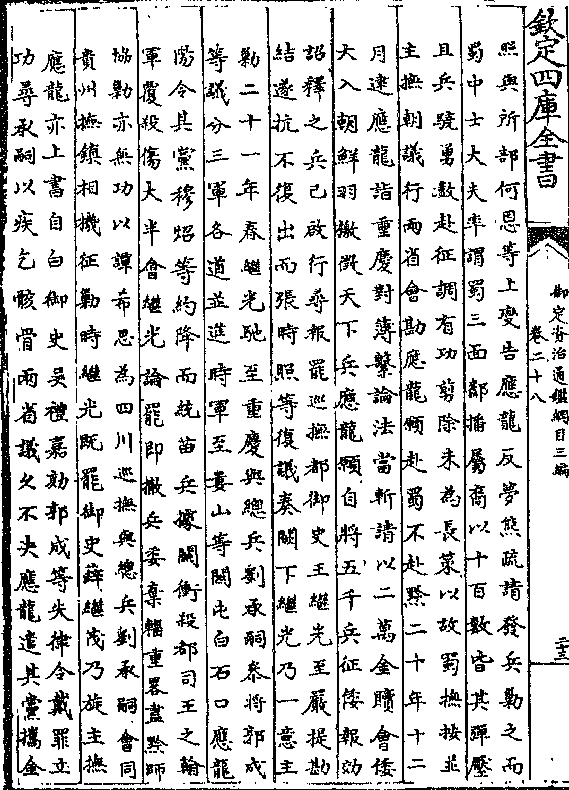 欽定四庫全書
御定資治通鑑綱目三編
卷二十八
三十三
照與所部何恩等上變告應龍反夢熊疏請發兵勦之而
蜀中士大夫率謂蜀三面鄰播屬裔以十百數皆其彈壓
且兵驍勇數赴征調有功剪除未為長策以故蜀撫按並
主撫朝議行兩省會勘應龍願赴蜀不赴黔二十年十二
月逮應龍詣重慶對簿繫論法當斬請以二萬金贖會倭
大入朝鮮羽檄徵天下兵應龍願自將五千兵征倭報効
詔釋之兵已啟行尋報罷巡撫都御史王繼光至嚴提勘
結遂抗不復出而張時照等復議奏闕下繼光乃一意主
勦二十一年春繼光馳至重慶與總兵劉承嗣叅將郭成
等議分三軍各道並進時軍至婁山等關屯白石口應龍
陽令其黨穆炤等約降而統苗兵據關衝殺都司王之翰
軍覆殺傷大半會繼光論罷即撤兵委棄輜重畧盡黔師
協勦亦無功以譚希思為四川巡撫與總兵劉承嗣會同
貴州撫鎮相機征勦時繼光既罷御史薛繼茂乃旋主撫
應龍亦上書自白御史吳禮嘉劾郭成等失律令戴罪立
功尋承嗣以疾乞骸骨兩省議久不决應龍遣其黨攜金